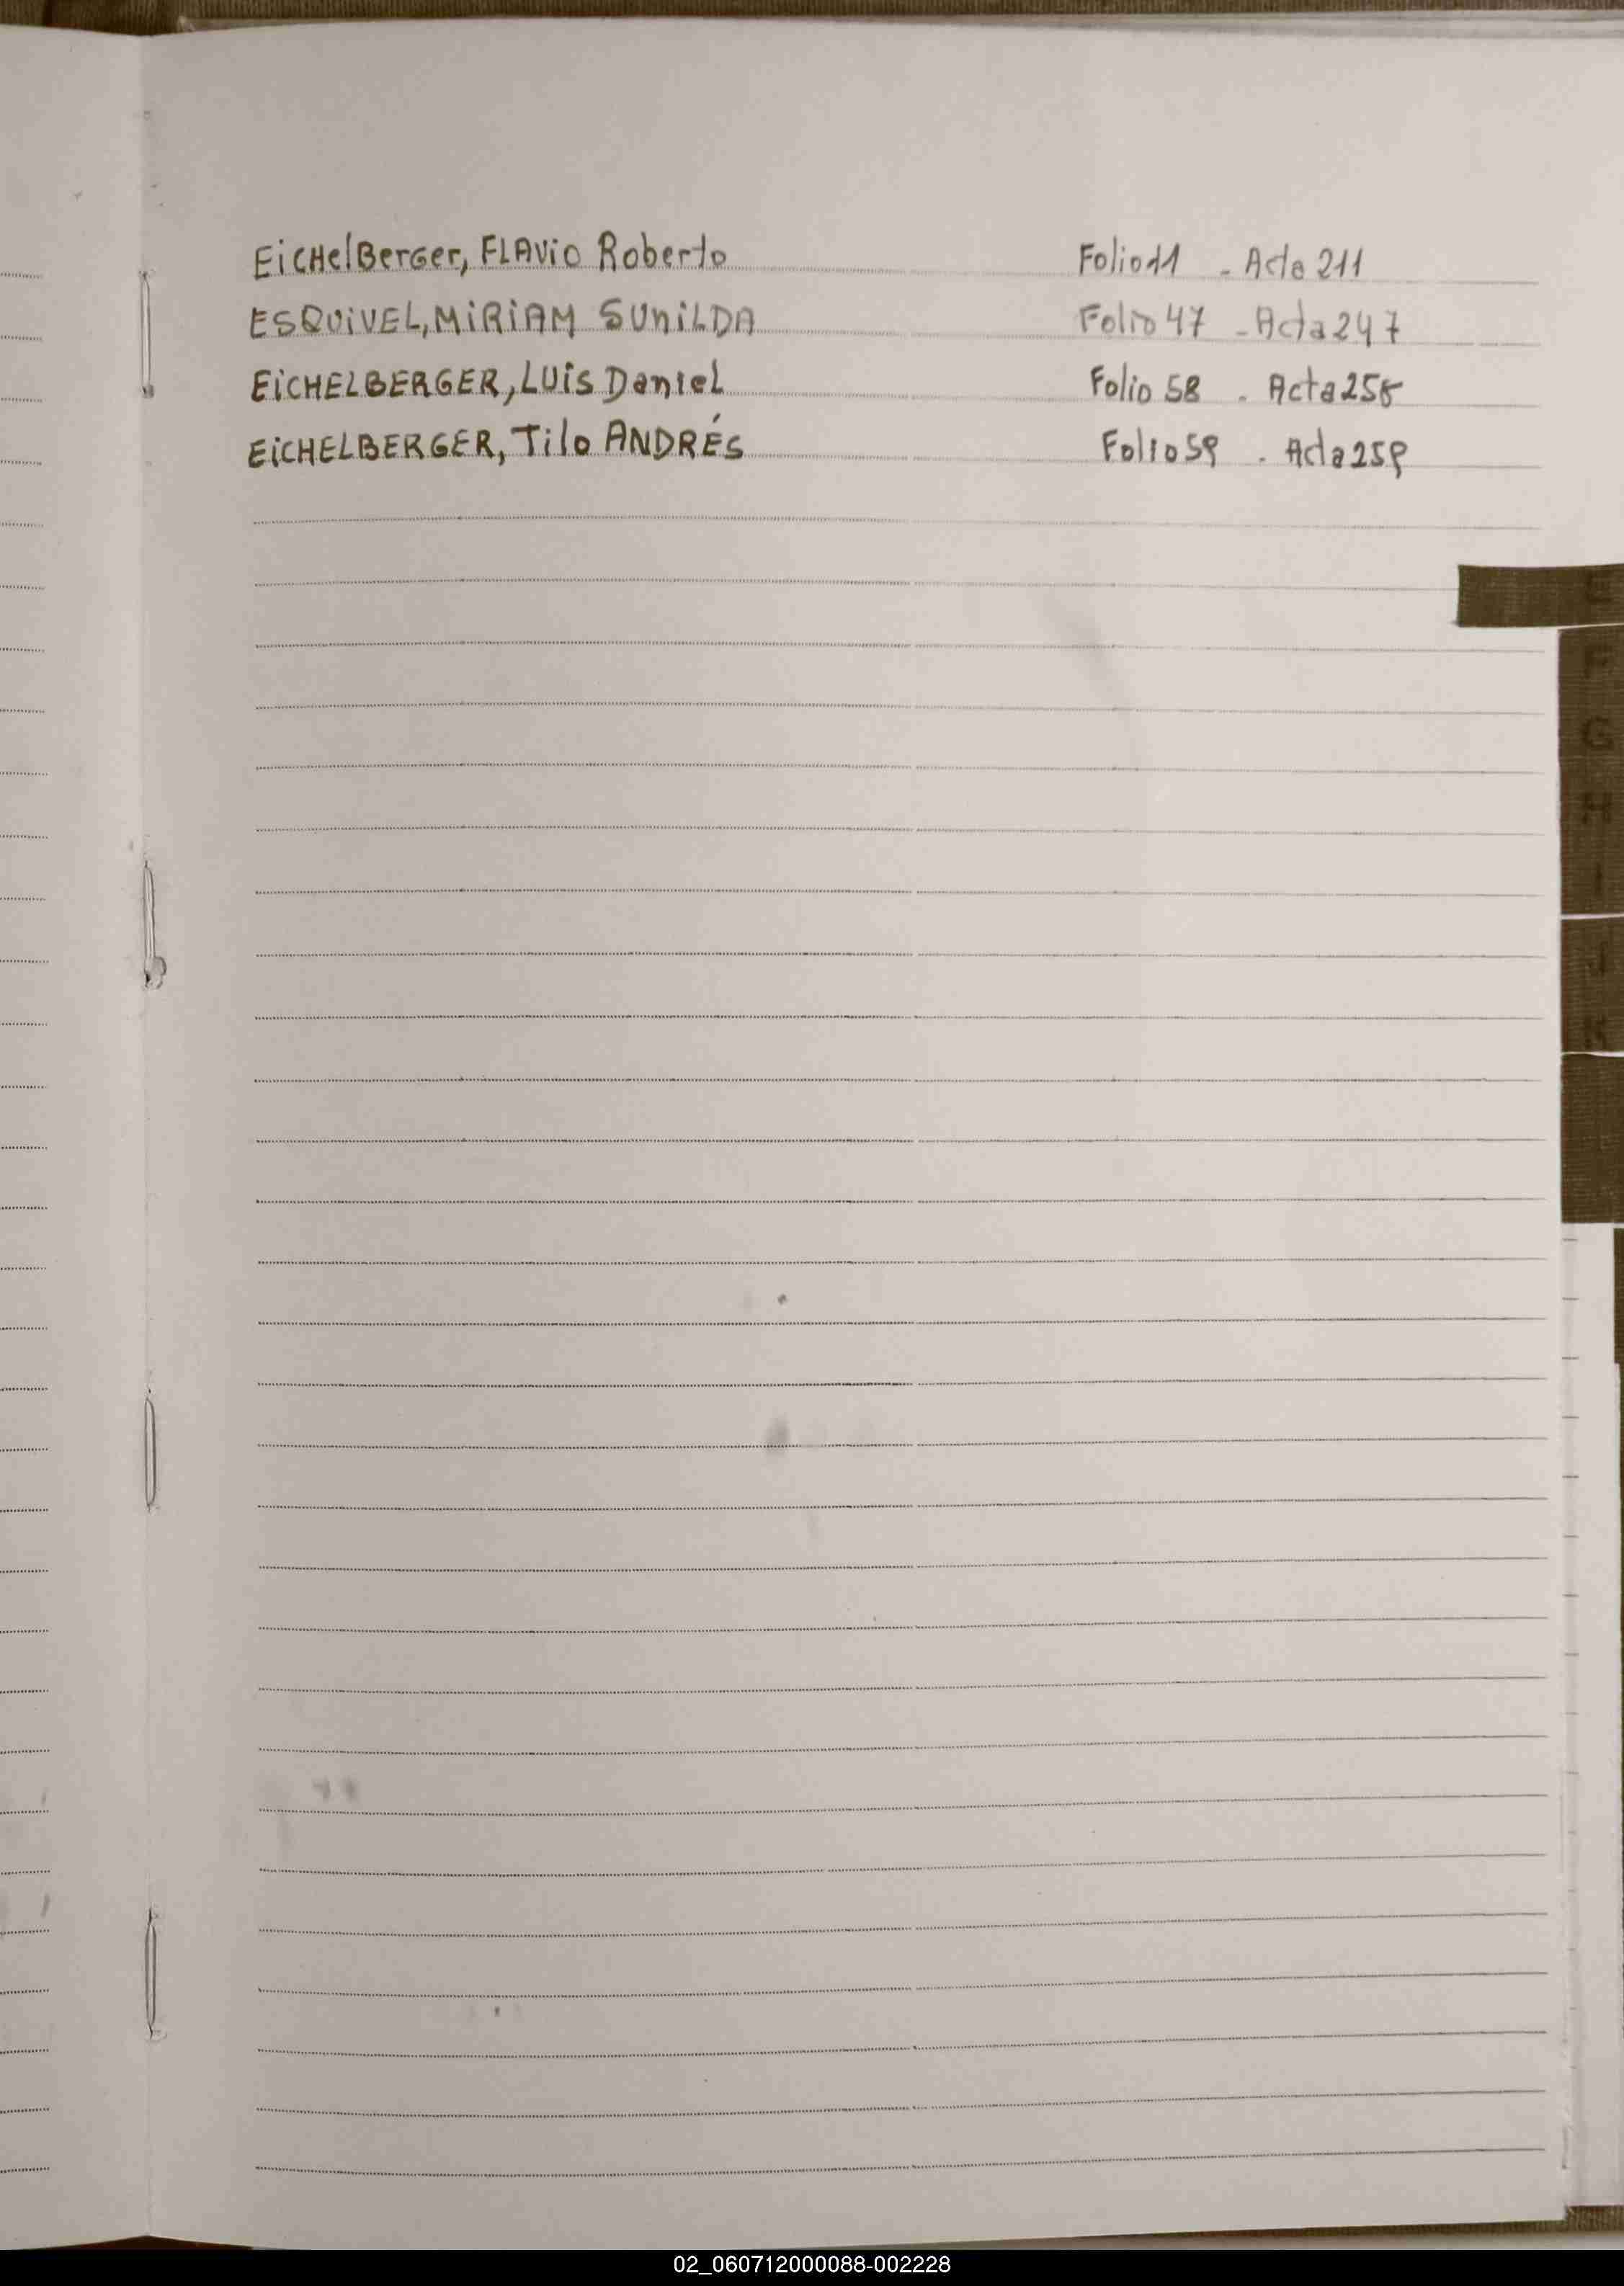 EicHelBerGer, FLAViO Roberto Folio 11 - Acta 211
ESQUIVEL, MiRiAM SUNiLDA Folio 47 - Acta 247
EiCHELBERGER, LUis Daniel Folio 58 - Acta 258
EiCHELBERGER, Tilo ANDRÉS Folio 59 - Acta 259
E
F
G
H
I
J
K
02_060712000088-002228